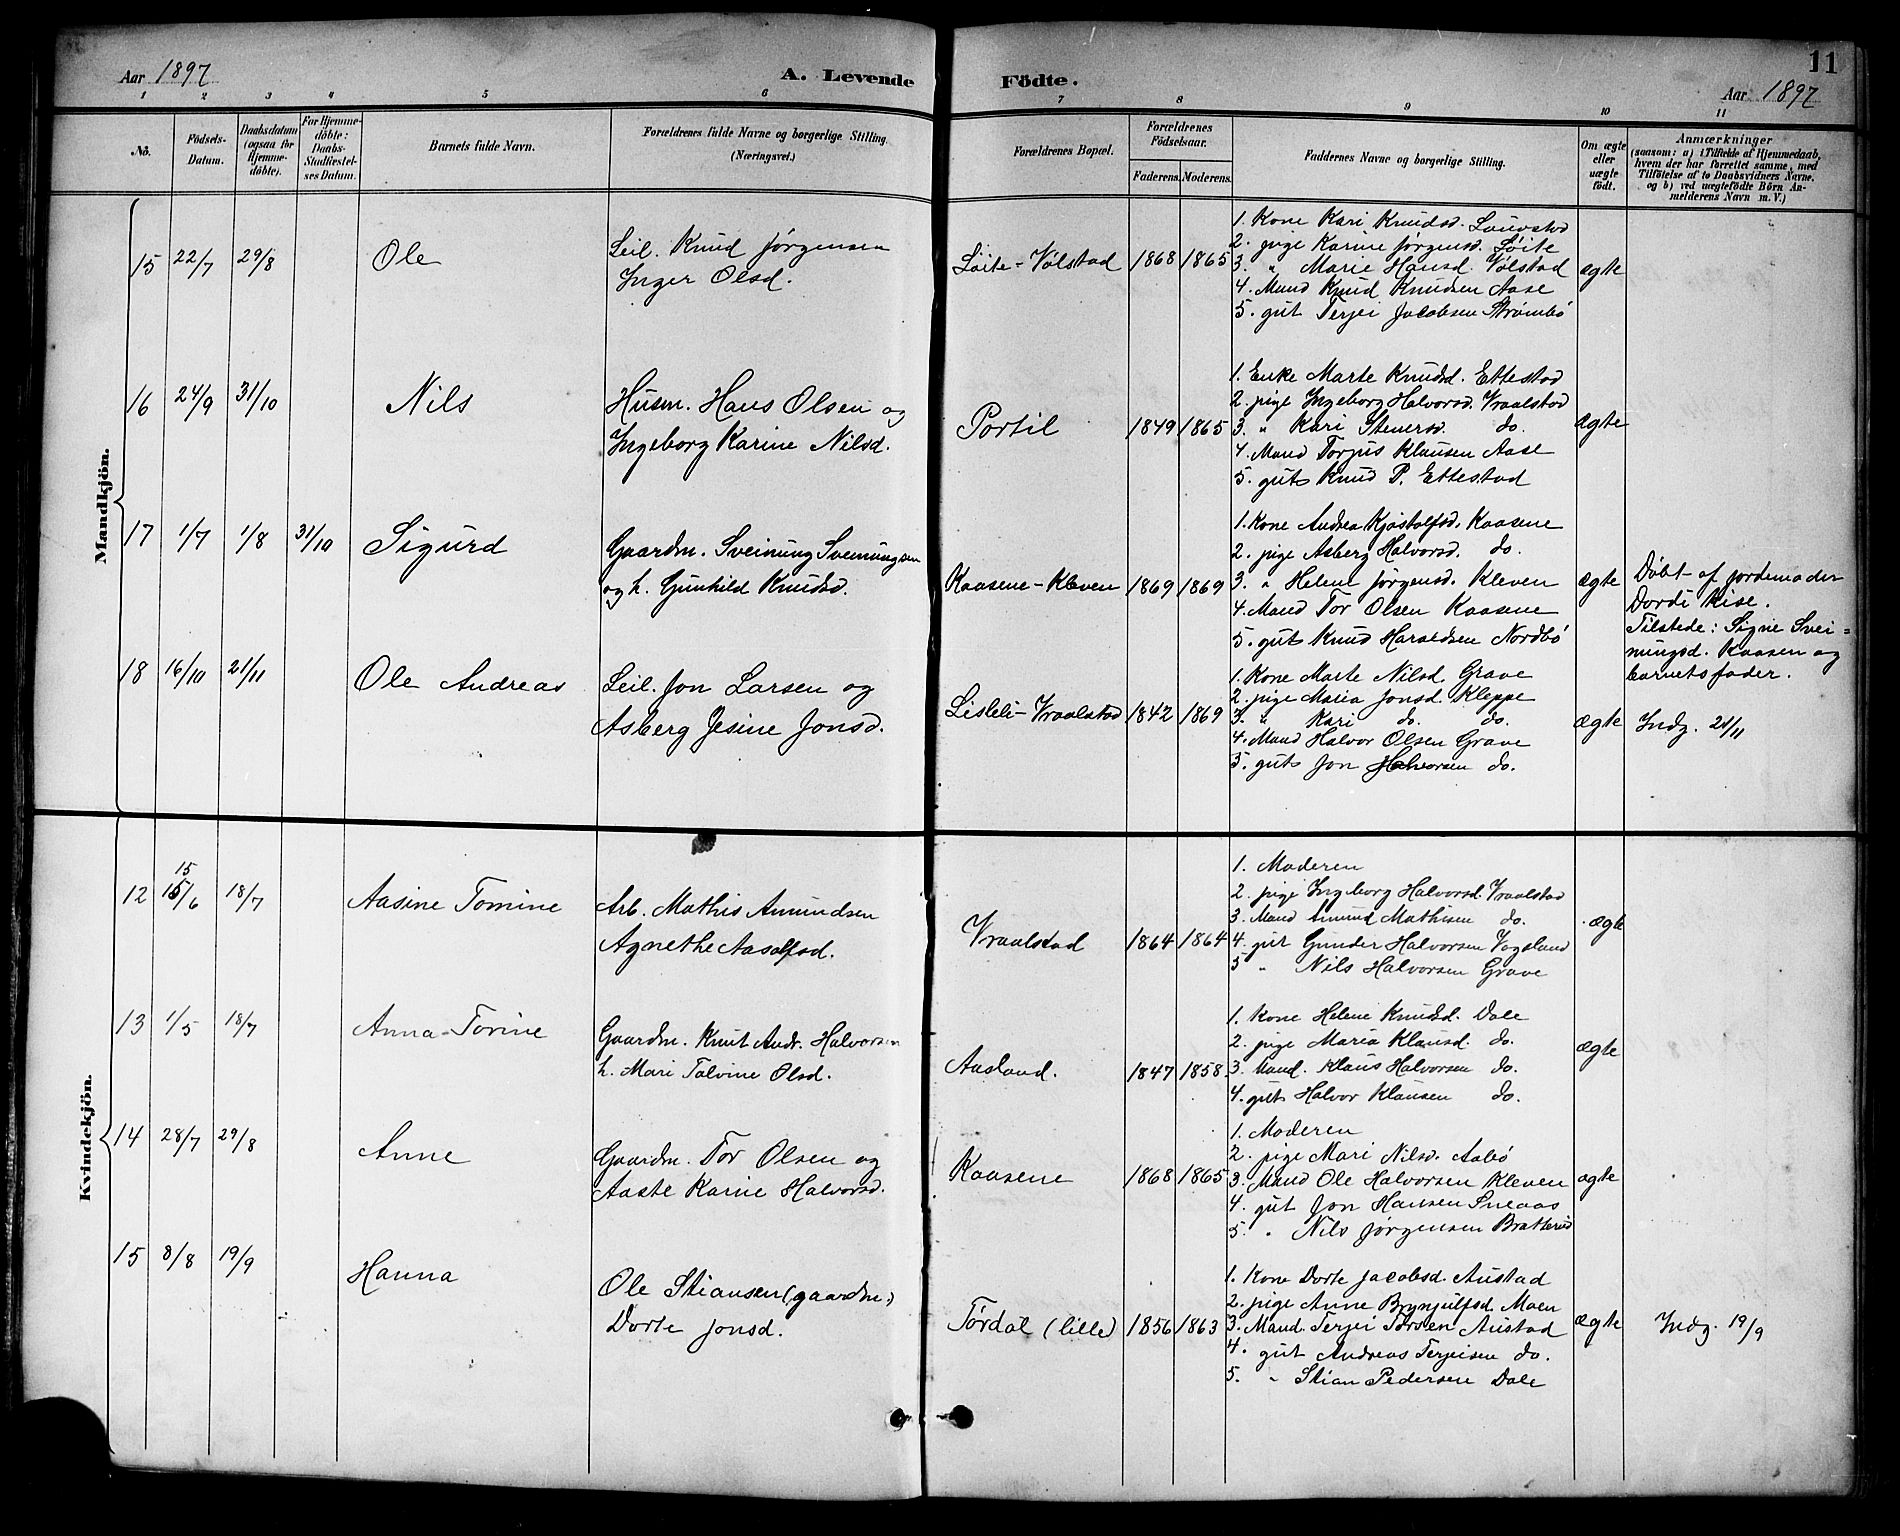 11
Aar 1897
A. Levende Födte.
Aar 1897
1 2 3 4 5 6 7 8 9 10 11
No.
Födsels-Datum.
Daabsdatum (ogsaa for Hjemme-döbte).
For Hjemme-döbte: Daabs-Stadfæstel-ses Datum.
Barnets fulde Navn.
Forældrenes fulde Navne og borgerlige Stilling. (Næringsvei.)
Forældrenes Bopæl.
Forældrenes Födselsaar.
Faderens. Moderens.
Faddernes Navne og borgerlige Stilling.
Om ægte eller uægte födt.
Anmærkninger
(saasom: a) i Tilfælde af Hjemmedaab, hvem der har forrettet samme, med Tilföielse af to Daabsvidners Navne, og b) ved uægtefödte Börn An-melderens Navn m. V.)
Mandkjön.
15 22/7 29/8 Ole
Leil. Knud Jørgensen
Inger Olsd.
Løite-Vølstad 1868 1865
1. Kone Kari Knudsd. Lauvstad
2. pige Karine Jørgensd. Løite
3. " Marie Hansd. Vølstad
4. Mand Knud Knudsen Aase
5. gut Terjei Jacobsen Strømbø
ægte
16 24/9 31/10 Nils
Husm. Hans Olsen og
Ingeborg Karine Nilsd.
Portil 1849 1865
1. Enke Marte Knudsd. Ettestad
2. pige Ingeborg Halvorsd. Vraalstad
3. " Kari Stenersd. do.
4. Mand Torjus Klausen Aase
5. gut Knud P. Ettestad
ægte
17 1/7 1/8 31/10 Sigurd
Gaardm. Sveinung Sveinungsen
og h. Gunhild Knudsd.
Kaasene-Kleven 1869 1869
1. Kone Andrea Kjøstolfsd. Kaasene
2. pige Asberg Halvorsd. do.
3. " Helene Jørgensd. Kleven
4. Mand Tor Olsen Kaasene
5. gut Knud Haraldsen Nordbø
ægte
Døbt af jordemoder
Dordi Kise.
Tilstede: Signe Svei=
nungsd. Kaasen og
barnets fader.
18 16/10 21/11 Ole Andreas
Leil. Jon Larsen og
Asberg Jesine Jonsd.
Lisleli-Vraalstad 1842 1869
1. Kone Marte Nilsd. Grave
2. pige Maria Jonsd. Kleppe
3. " Kari do. do.
4. Mand Halvor Olsen Grave
5. gut Jon Halvorsen do.
ægte
Indg. 21/11
Kvindekjön.
12 15/6 15 18/7 Aasine Tomine
Arb. Mathis Amundsen
Agnethe Aasolfsd.
Vraalstad 1864 1864
1. Moderen
2. pige Ingeborg Halvorsd. Vraalstad
3. Mand Amund Mathisen do.
4. gut Gunder Halvorsen Vogsland
5 " Nils Halvorsen Grave
ægte
13 1/5 18/7 Anna-Torine
Gaardm. Knut Andr. Halvorsen
h. Mari Tolvine Olsd.
Aasland. 1847 1858
1. Kone Helene Knudsd. Dale
2. pige Maria Klausd. do.
3. Mand. Klaus Halvorsen do.
4. gut Halvor Klausen do.
ægte
14 28/7 29/8 Anne
Gaardm. Tor Olsen og
Aaste Karine Halvorsd.
Kaasene 1868 1865
1. Moderen
2. pige Mari Nilsd. Aabø
3. Mand Ole Halvorsen Kleven
4. gut Jon Hansen Sneaas
5. " Nils Jørgensen Bratterud
ægte
15 8/8 19/9 Hanna
Ole Stiansen (gaardm.)
Dorte Jonsd.
Tørdal (lille) 1856 1863
1. Kone Dorte Jacobsd. Austad
2. pige Anne Brynjulfsd. Moen
3. Mand. Terjei Torsen Austad
4. gut Andreas Terjeisen do.
5. " Stian Pedersen Dale
ægte
Indg. 19/9